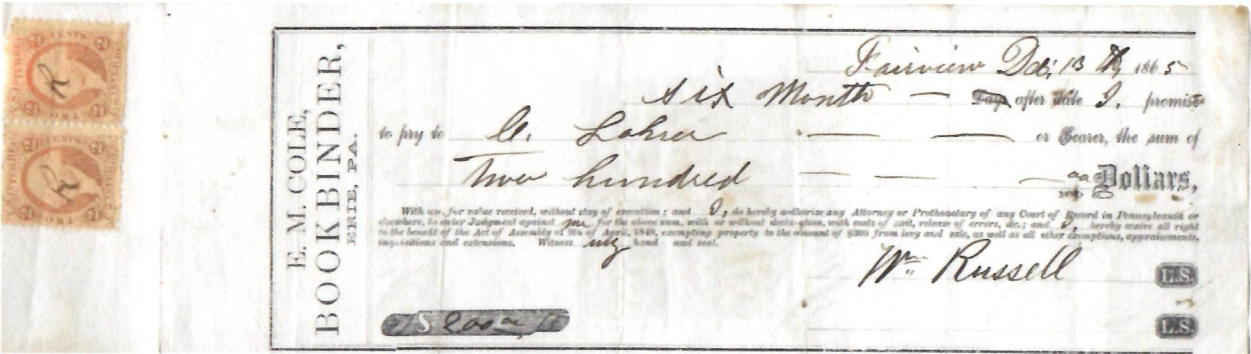 E. M. COLE,
BOOKBINDER,
ERIE, PA.
Fairview Dec 13th, 1865
six Month — Days after date I, promise
to pay to C. — — or Bearer, the sum of
Two hundred — — — Dollars,
With use, for value received, without stay of execution; and I, do hereby authorize any Attorney or Prothonotary of any Court of Record in Pennsylvania or
elsewhere, to enter Judgment against me for the above sum, with or without declaration, with costs of suit, release of errors, &c.; and I, hereby waive all right
to the benefit of the Act of Assembly of 9th of April, 1849, exempting property to the amount of $300 from levy and sale, as well as all other exemptions, appraisements,
inquisitions and extensions. Witness my hand and seal.
Wm Russell L.S.
$ 200 L.S.